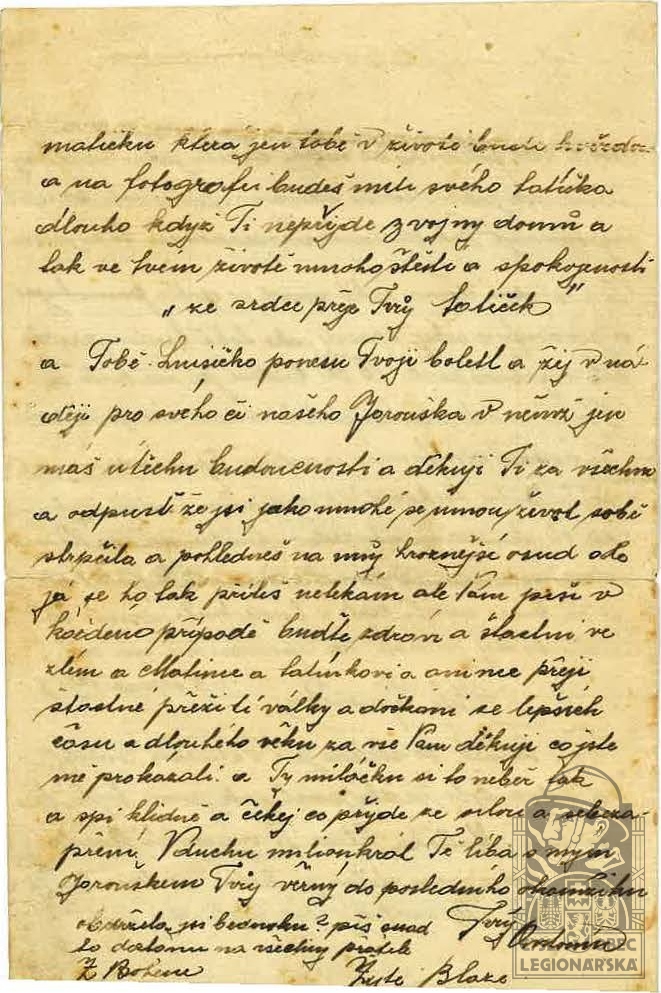 matičku která jen tobě v životě bude hvězdou
a na fotografii budeš míti svého tatíčka
dlouho když Ti nepřijde z vojny domů a
tak ve tvém životě mnoho štěstí a spokojenosti
„ze srdce přeje Tvůj tatíček"
a Tobě Luisičko ponesu Tvoji bolest a žij v ná
ději pro svého či našeho Jarouška v němž jen
máš útěchu budoucnosti a děkuji Ti za všechno
a odpusť že jsi jako mnohé se mnou život sobě
strpčila a pohledneš na můj hroznější osud ale
já se ho tak příliš nelekám ale Vám přeji v
každém případě buďte zdrávi a šťastni ve
zlém a Matince a tatínkovi a anince přeji
šťastné přežití války a dočkání se lepších
časů a dlouhého věku za vše Vám děkuji co jste
mě prokázali. a Ty miláčku si to neber tak
a spi klidně a čekej co přijde ze silou a sebeza-
přění. V duchu milionkrát Tě líbá s mým
Jarouškem Tvůj věrný do posledního okamžiku
obdržela jsi bednoku? piš snad Tvůj Antonín
to dostanu na všechny pratele
Z Bohem Ještě Blaze
OBEC
LEGIONÁŘSKÁ